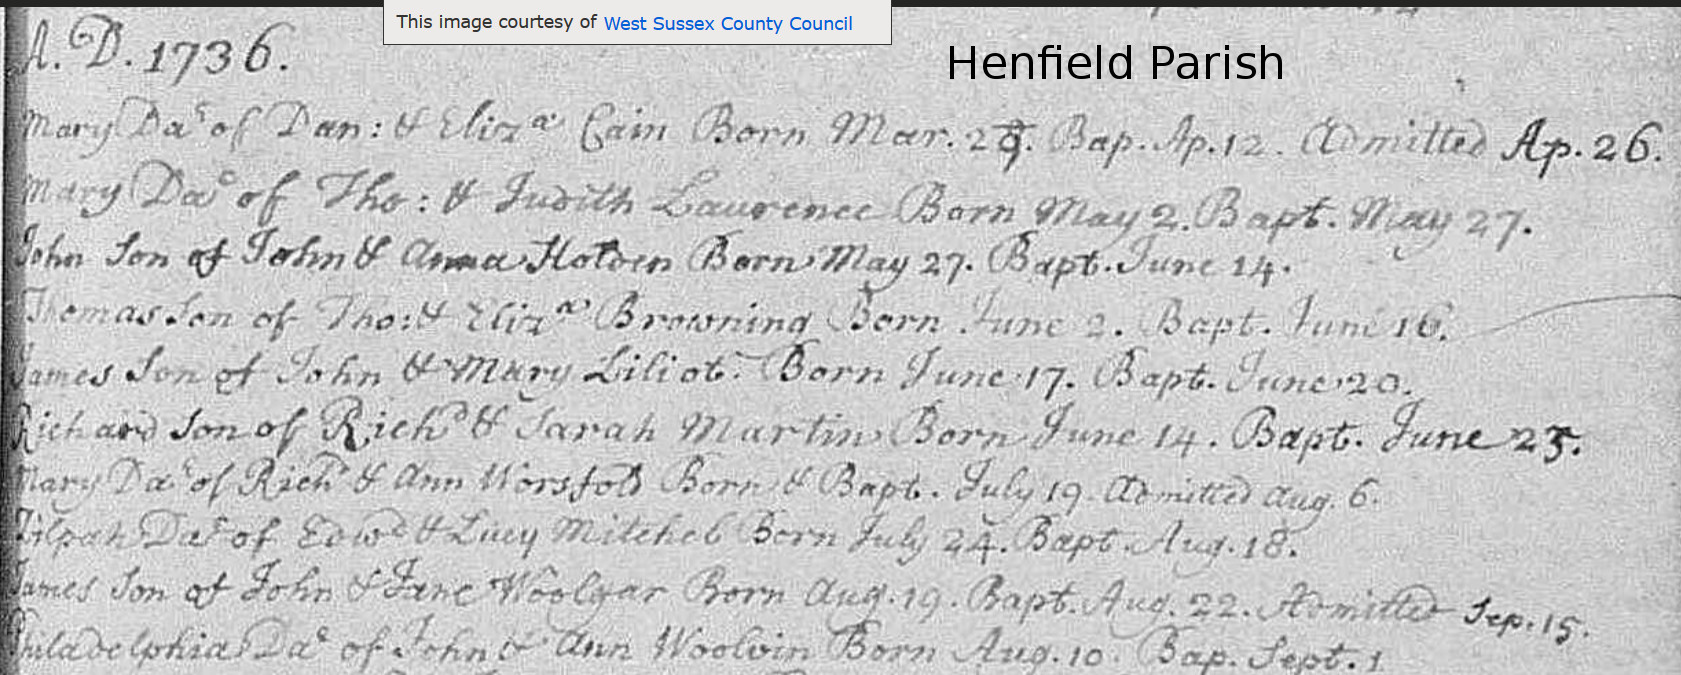 This image courtesy of West Sussex County Council
A.D. 1736.
Henfield Parish
Mary Daʳ of Dan: & Elizᵃ Cain Born Mar. 29. Bap. Ap. 12. Admitted Ap. 26.
Mary Daʳ of Tho: & Judith Laurence Born May 2. Bapt. May 27.
John Son of John & Anna Holden Born May 27. Bapt. June 14.
Thomas Son of Tho: & Elizᵃ Browning Born June 2. Bapt. June 16.
James Son of John & Mary Liliot. Born June 17. Bapt. June 20.
Richard Son of Richᵈ & Sarah Martin Born June 14. Bapt. June 25.
Mary Daʳ of Richᵈ & Ann Worsfold Born & Bapt. July 19. Admitted Aug. 6.
Zilpah Daʳ of Edwᵈ & Lucy Mitchel Born July 24. Bapt. Aug. 18.
James Son of John & Jane Woolgar Born Aug. 19. Bapt. Aug. 22. Admitted Sep. 15.
Philadelphia Daʳ of John & Ann Woolvin Born Aug. 10. Bap. Sept. 1